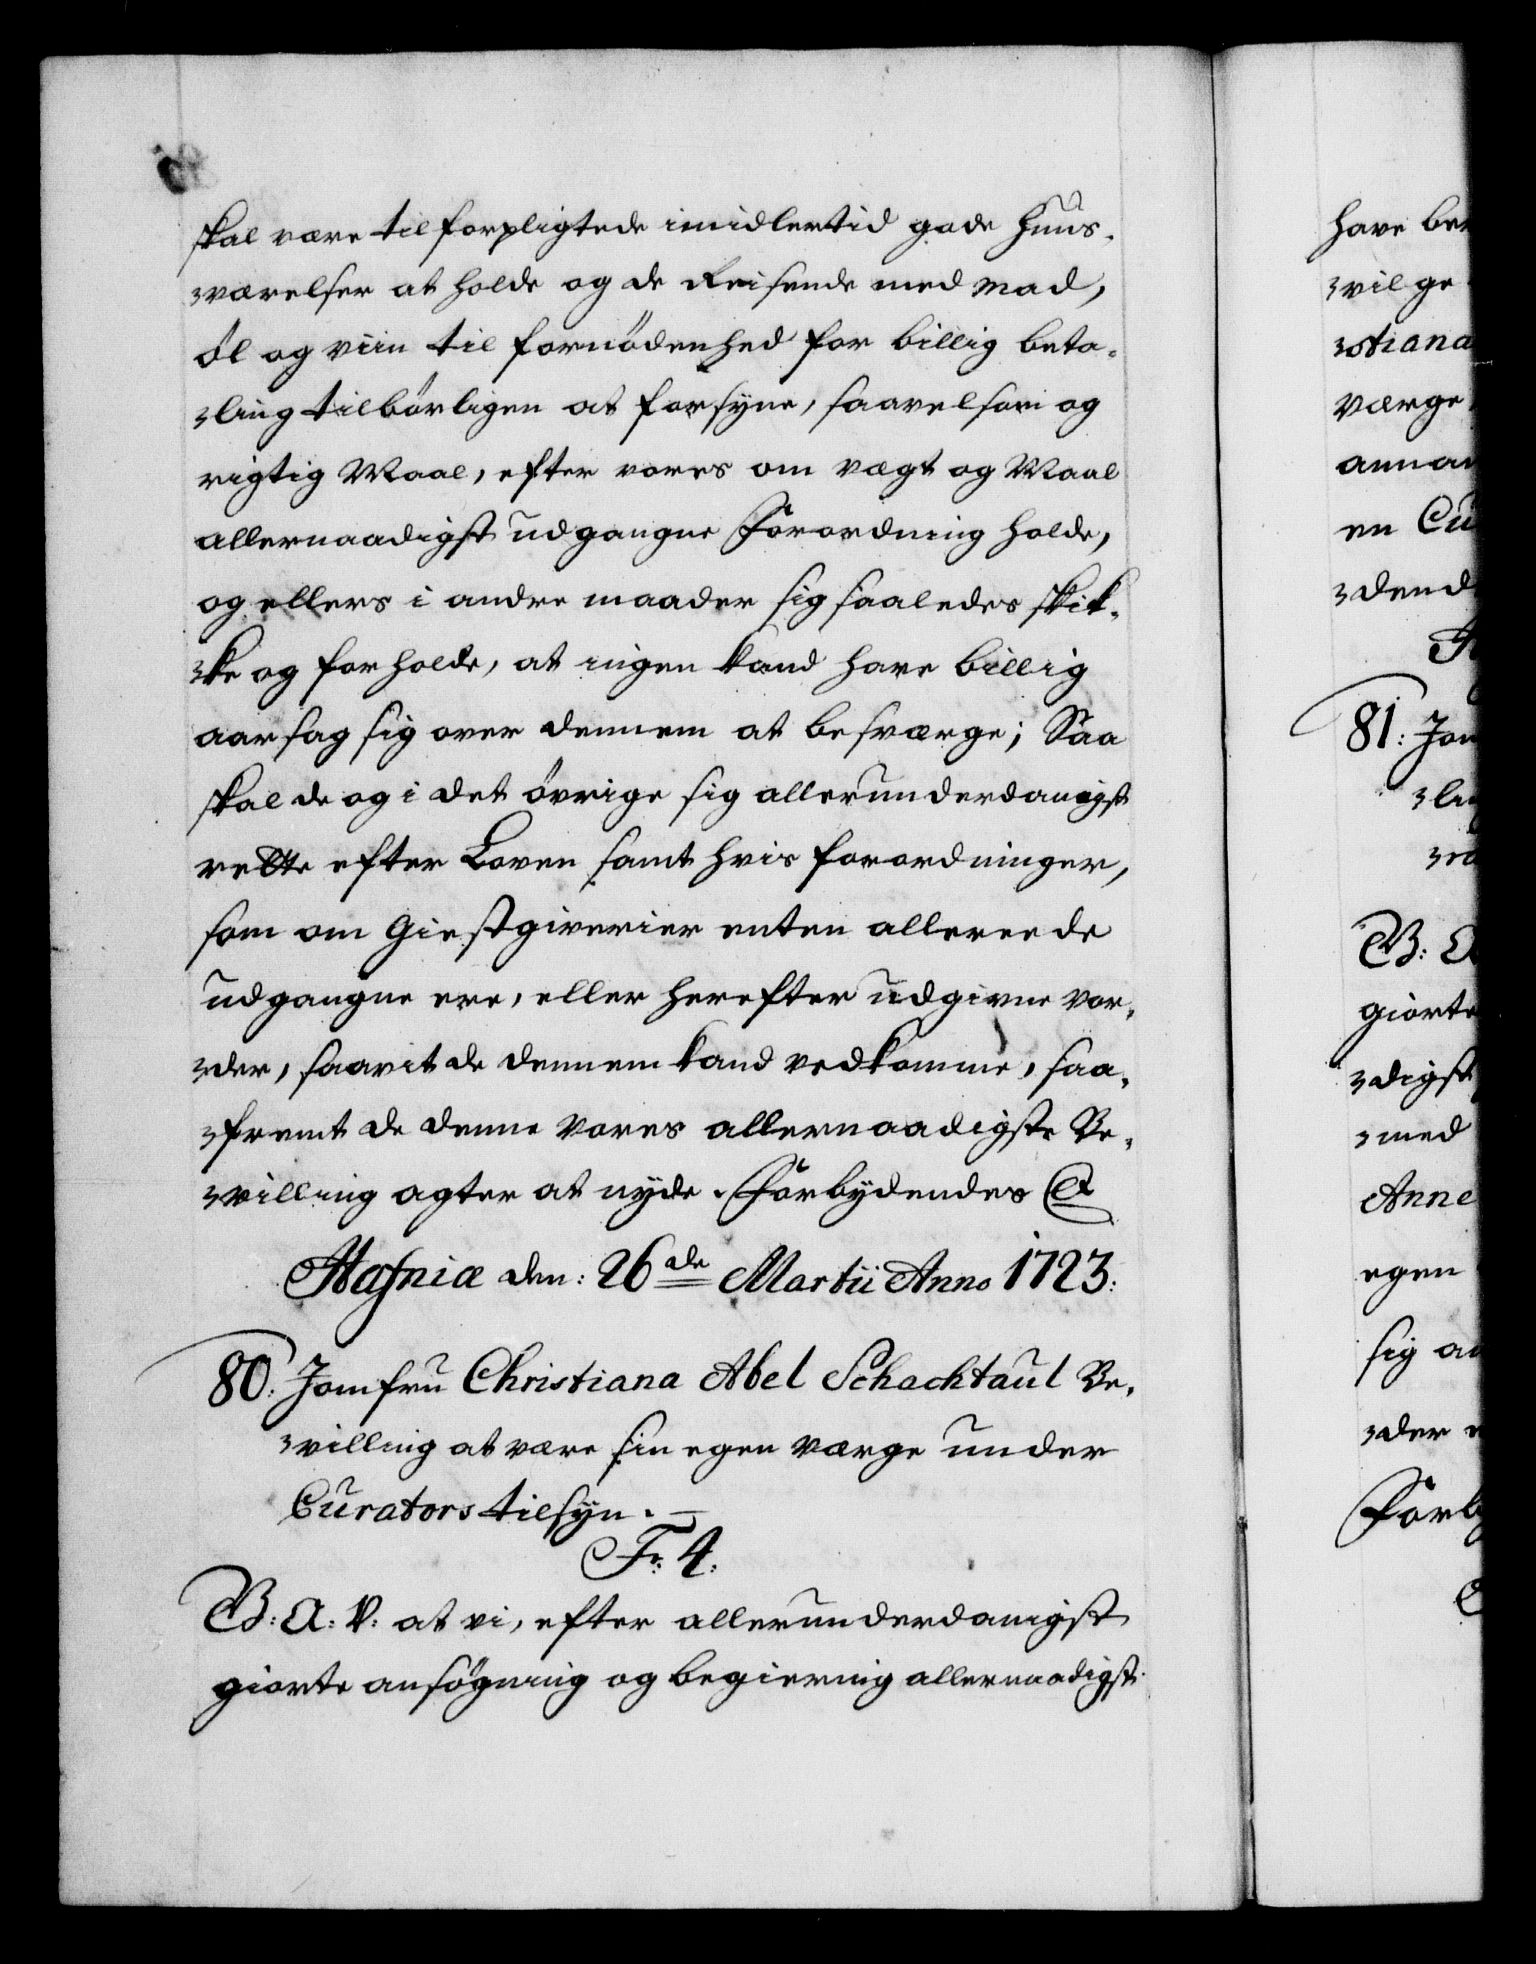 skal være tilforpligtede imidlertid gode Huus-
-værelser at holde og de Reisende med Mad,
øl og viin til fornødenhed for billig beta-
-ling tilbørligen at forsyne, saavelsom og
rigtig Maal, efter vores om vægt og Maal
allernaadigst udgangne Forordning holde,
og ellers i andre maader sig saaledes skik-
-ke og forholde, at ingen kand have billig
aarsag sig over dennem at besværge; Saa
skal de og i det øvrige sig allerunderdanigst
rette efter Loven samt hvis forordninger,
som om Giestgiverier enten allereede
udgangne ere, eller herefter udgivne vor-
-der, saavit de dennem kand vedkomme, saa-
-fremt de denne vores allernaadigste Be-
-villing agter at nyde. Forbydendes &
Hafniæ den: 26de Martii Anno 1723:
80: Jomfru Christiana Abel Schachtaul Be-
-villing at være sin egen værge under
Curators tilsyn.
Fr: 4:
B: A: V: at vi, efter allerunderdanigst
giorte ansøgning og begiering allernaadigst
have
-vilge
-stiana
værge
en
81:
B:
giorte
-digst
-med
Anne
egen
sig
-der